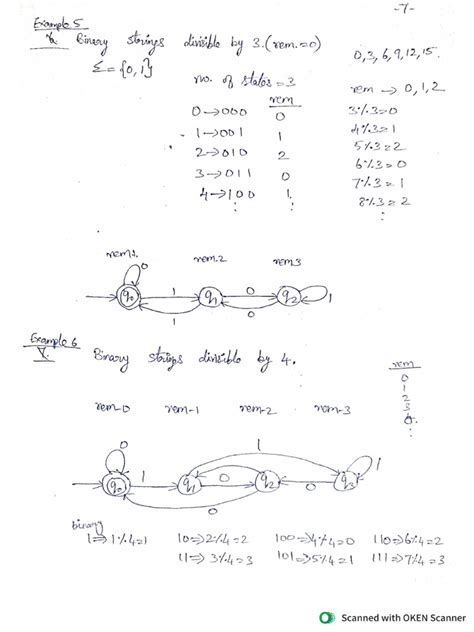 -7-
Example 5
Binary strings divisible by 3. (rem.=0)
0,3,6,9,12,15.
Σ={0,1}
no. of states=3
rem → 0,1,2
rem
0→000 0
3%3=0
1→001 1
4%3=1
2→010 2
5%3=2
3→011 0
6%3=0
4→100 1.
7%3=1
8%3=2
rem.2
rem.3
0
1
0
1
q0
q1
q2
1
0
Example 6
Binary strings divisible by 4.
rem
0
1
2
3
rem-0 rem-1 rem-2 rem-3
0
1
1
1
0
q0
q1
q2
q3
0
0
binary
1⇒1%4=1 10⇒2%4=2 100⇒4%4=0 110⇒6%4=2
11⇒3%4=3 101⇒5%4=1 111⇒7%4=3
Scanned with OKEN Scanner